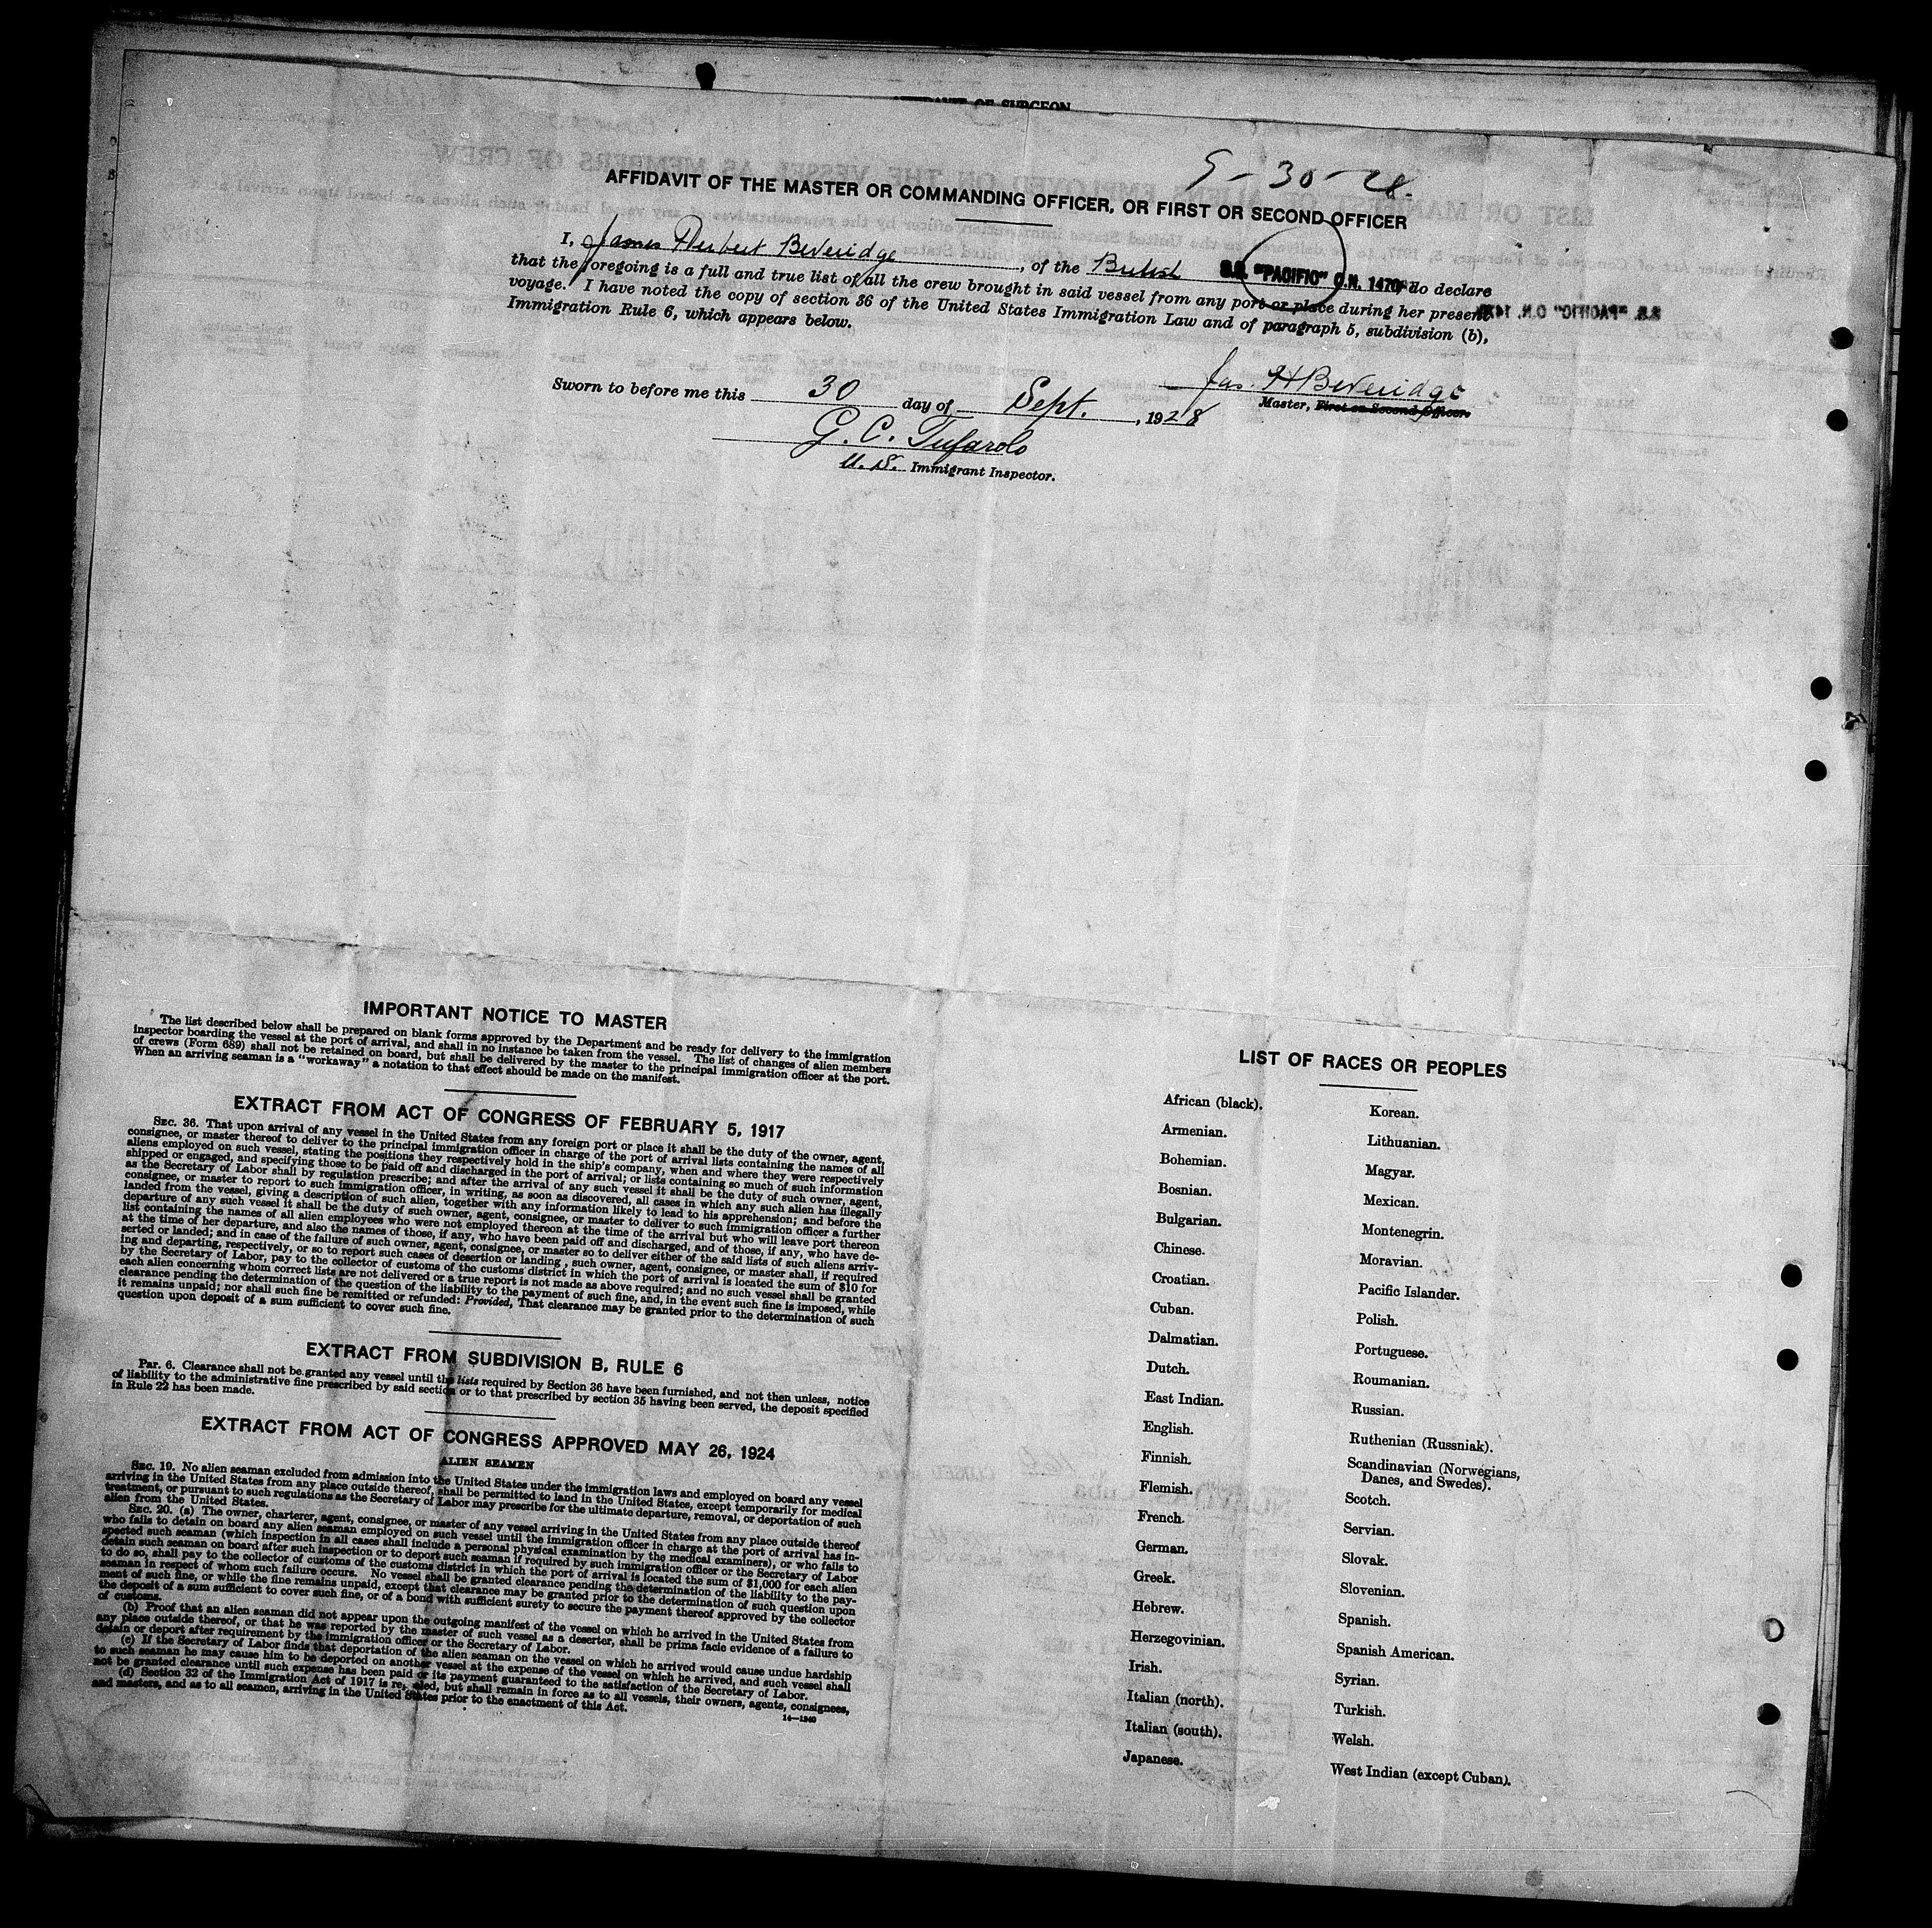 AFFIDAVIT OF SURGEON
9-30-28.
AFFIDAVIT OF THE MASTER OR COMMANDING OFFICER, OR FIRST OR SECOND OFFICER
I, James Herbert Beveridge, of the British S.S. "PACIFIC" O.N. 1470 do declare
that the foregoing is a full and true list of all the crew brought in said vessel from any port or place during her present
voyage. I have noted the copy of section 36 of the United States Immigration Law and of paragraph 5, subdivision (b),
Immigration Rule 6, which appears below.
Jas. H Beveridge
Master, First or Second Officer.
Sworn to before me this 30 day of Sept., 1928
G. C. Tufarolo
U. S. Immigrant Inspector.
IMPORTANT NOTICE TO MASTER
The list described below shall be prepared on blank forms approved by the Department and be ready for delivery to the immigration
inspector boarding the vessel at the port of arrival, and shall in no instance be taken from the vessel. The list of changes of alien members
of crews (Form 689) shall not be retained on board, but shall be delivered by the master to the principal immigration officer at the port.
When an arriving seaman is a "workaway" a notation to that effect should be made on the manifest.
EXTRACT FROM ACT OF CONGRESS OF FEBRUARY 5, 1917
SEC. 36. That upon arrival of any vessel in the United States from any foreign port or place it shall be the duty of the owner, agent,
consignee, or master thereof to deliver to the principal immigration officer in charge of the port of arrival lists containing the names of all
aliens employed on such vessel, stating the positions they respectively hold in the ship's company, when and where they were respectively
shipped or engaged, and specifying those to be paid off and discharged in the port of arrival; or lists containing so much of such information
as the Secretary of Labor shall by regulation prescribe; and after the arrival of any such vessel it shall be the duty of such owner, agent,
consignee, or master to report to such immigration officer, in writing, as soon as discovered, all cases in which any such alien has illegally
landed from the vessel, giving a description of such alien, together with any information likely to lead to his apprehension; and before the
departure of any such vessel it shall be the duty of such owner, agent, consignee, or master to deliver to such immigration officer a further
list containing the names of all alien employees who were not employed thereon at the time of the arrival but who will leave port thereon
at the time of her departure, and also the names of those, if any, who have been paid off and discharged, and of those, if any, who have de-
serted or landed; and in case of the failure of such owner, agent, consignee, or master so to deliver either of the said lists of such aliens arriv-
ing and departing, respectively, or so to report such cases of desertion or landing, such owner, agent, consignee, or master shall, if required
by the Secretary of Labor, pay to the collector of customs of the customs district in which the port of arrival is located the sum of $10 for
each alien concerning whom correct lists are not delivered or a true report is not made as above required; and no such vessel shall be granted
clearance pending the determination of the question of the liability to the payment of such fine, and, in the event such fine is imposed, while
it remains unpaid; nor shall such fine be remitted or refunded: Provided, That clearance may be granted prior to the determination of such
question upon deposit of a sum sufficient to cover such fine.
EXTRACT FROM SUBDIVISION B, RULE 6
Par. 6. Clearance shall not be granted any vessel until the lists required by Section 36 have been furnished, and not then unless, notice
of liability to the administrative fine prescribed by said section or to that prescribed by section 35 having been served, the deposit specified
in Rule 22 has been made.
EXTRACT FROM ACT OF CONGRESS APPROVED MAY 26, 1924
ALIEN SEAMEN
SEC. 19. No alien seaman excluded from admission into the United States under the immigration laws and employed on board any vessel
arriving in the United States from any place outside thereof, shall be permitted to land in the United States, except temporarily for medical
treatment, or pursuant to such regulations as the Secretary of Labor may prescribe for the ultimate departure, removal, or deportation of such
alien from the United States.
SEC. 20. (a) The owner, charterer, agent, consignee, or master of any vessel arriving in the United States from any place outside thereof
who fails to detain on board any alien seaman employed on such vessel until the immigration officer in charge at the port of arrival has in-
spected such seaman (which inspection in all cases shall include a personal physical examination by the medical examiners), or who fails to
detain such seaman on board after such inspection or to deport such seaman if required by such immigration officer or the Secretary of Labor
to do so, shall pay to the collector of customs of the customs district in which the port of arrival is located the sum of $1,000 for each alien
seaman in respect of whom such failure occurs. No vessel shall be granted clearance pending the determination of the liability to the pay-
ment of such fine, or while the fine remains unpaid, except that clearance may be granted prior to the determination of such question upon
the deposit of a sum sufficient to cover such fine, or of a bond with sufficient surety to secure the payment thereof approved by the collector
of customs.
(b) Proof that an alien seaman did not appear upon the outgoing manifest of the vessel on which he arrived in the United States from
any place outside thereof, or that he was reported by the master of such vessel as a deserter, shall be prima facie evidence of a failure to
detain or deport after requirement by the immigration officer or the Secretary of Labor.
(c) If the Secretary of Labor finds that deportation of the alien seaman on the vessel on which he arrived would cause undue hardship
to such seaman he may cause him to be deported on another vessel at the expense of the vessel on which he arrived, and such vessel shall
not be granted clearance until such expense has been paid or its payment guaranteed to the satisfaction of the Secretary of Labor.
(d) Section 32 of the Immigration Act of 1917 is repealed, but shall remain in force as to all vessels, their owners, agents, consignees,
and masters, and as to all seamen, arriving in the United States prior to the enactment of this Act.
14—1340
LIST OF RACES OR PEOPLES
African (black).
Armenian.
Bohemian.
Bosnian.
Bulgarian.
Chinese.
Croatian.
Cuban.
Dalmatian.
Dutch.
East Indian.
English.
Finnish.
Flemish.
French.
German.
Greek.
Hebrew.
Herzegovinian.
Irish.
Italian (north).
Italian (south).
Japanese.
Korean.
Lithuanian.
Magyar.
Mexican.
Montenegrin.
Moravian.
Pacific Islander.
Polish.
Portuguese.
Roumanian.
Russian.
Ruthenian (Russniak).
Scandinavian (Norwegians,
Danes, and Swedes).
Scotch.
Servian.
Slovak.
Slovenian.
Spanish.
Spanish American.
Syrian.
Turkish.
Welsh.
West Indian (except Cuban).